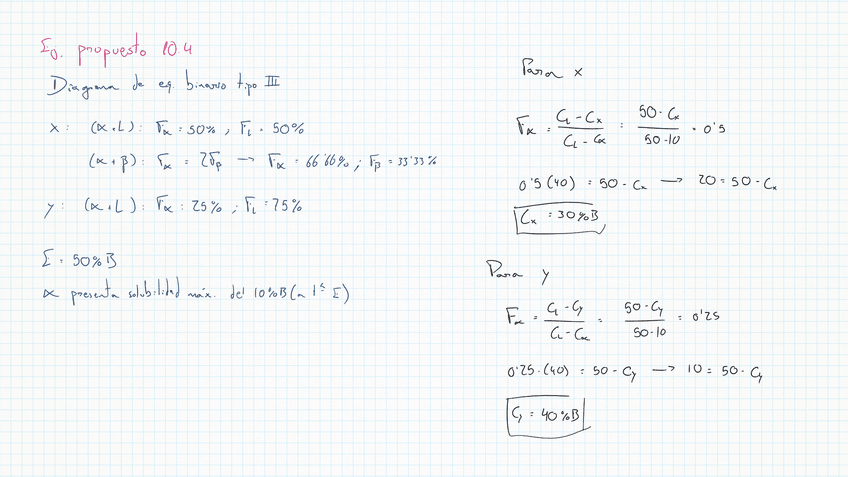 Eo. propuesto 10.4
Diagrama de eq. binario tipo III
x: (α+L): Fα = 50%, FL = 50%
(α+β): Fα = 2Fβ → Fα = 66'66%; Fβ = 33'33%
y: (α+L): Fα = 25%; FL = 75%
E = 50%B
α presenta solubilidad máx. del 10%B (a Tª E)
Para x
Fα = (CL - Cx)/(CL - Cα) = (50 - Cx)/(50-10) = 0'5
0'5 (40) = 50 - Cx → 20 = 50 - Cx
Cx = 30%B
Para y
Fα = (CL - Cy)/(CL - Cα) = (50 - Cy)/(50-10) = 0'25
0'25·(40) = 50 - Cy → 10 = 50 - Cy
Cy = 40%B